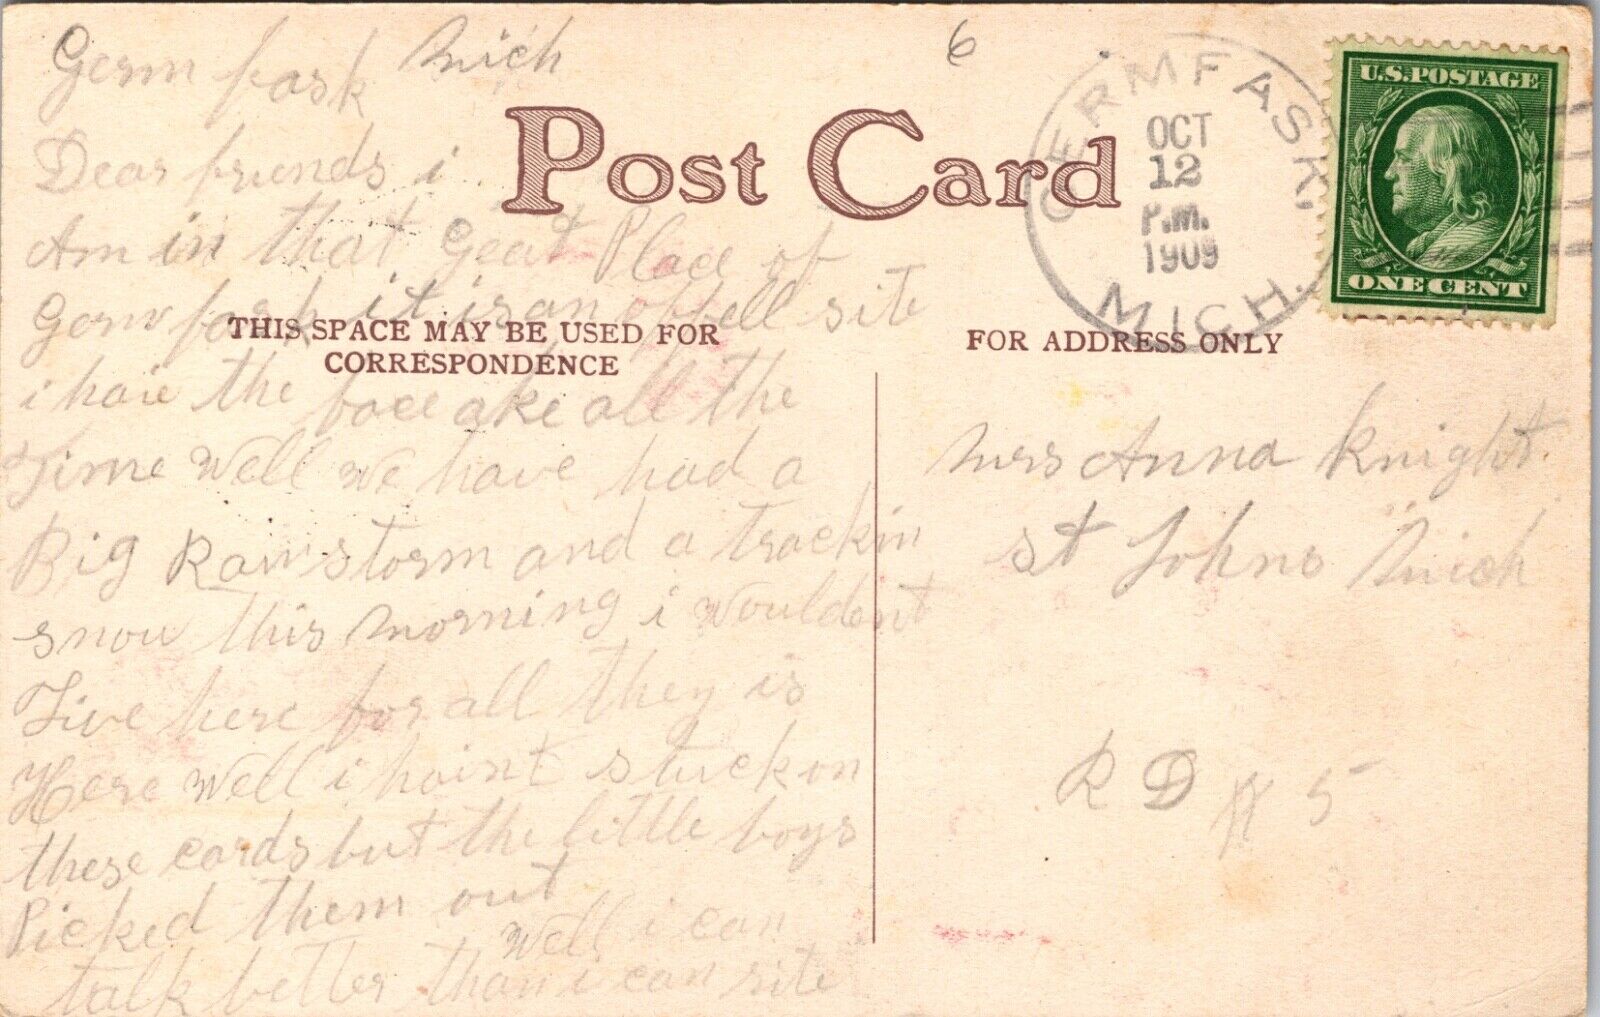 Germ fask Mich
6
GERMFASK, MICH.
OCT
12
P.M.
1909
U.S. POSTAGE
ONE CENT
Post Card
Dear friends i
Am in that Geat Place of
Germ fask it is an offell site
THIS SPACE MAY BE USED FOR
CORRESPONDENCE
i have the face ake all the
Time Well We have had a
Big Rain storm and a trackin
snow this morning i wouldent
Live here for all they is
Here Well i haint stuck on
these cards but the little boys
Picked them out
Well i can
talk better than i can site
FOR ADDRESS ONLY
Mrs Anna Knight
St Johns Mich
R D # 5